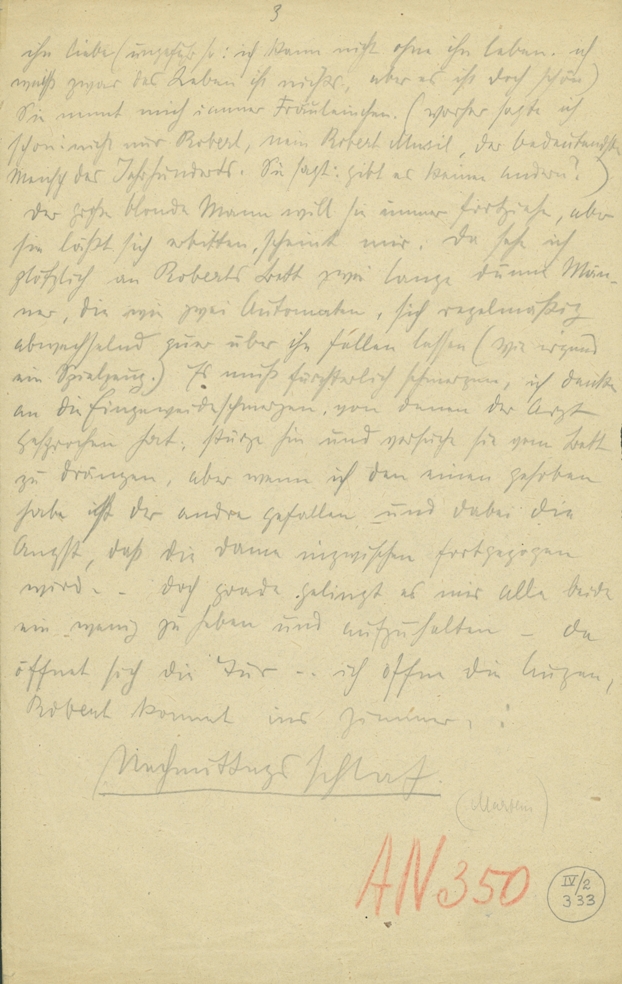 3
ihn liebe (ungefähr so: ich kann nicht ohne ihn leben. ich
weiß zwar das Leben ist nichts, aber es ist doch schön)
Sie nennt mich immer Fräuleinchen. (vorher sagte ich
schon: nicht nur Robert, mein Robert Musil, der bedeutendste
Mensch des Jahrhunderts. Sie sagt: gibt es keinen andern?)
Der große blonde Mann will sie immer fortziehn, aber
sie läßt sich erbitten, scheint mir. Da sehe ich
plötzlich an Roberts Bett zwei lange dünne Män-
ner, die wie zwei Automaten, sich regelmäßig
abwechselnd quer über ihn fallen lassen (wie irgend
ein Spielzeug.) Es muß fürchterlich schmerzen, ich denke
an die Eingeweideschmerzen, von denen der Arzt
gesprochen hat; stürze hin und versuche sie vom Bett
zu drängen, aber wenn ich den einen gehoben
habe ist der andre gefallen und dabei die
Angst, daß die Dame inzwischen fortgezogen
wird. - doch grade gelingt es mir alle beide
ein wenig zu heben und aufzuhalten - da
öffnet sich die Tür -- ich öffne die Augen,
Robert kommt ins Zimmer.
Nachmittags schlaf.
AN 350
IV/2
333